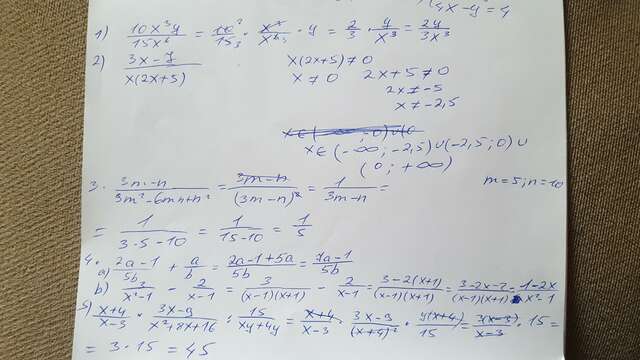 4x-y²=4
1) 10x³y/15x⁶ = 10²/15₃ · x³/x⁶³ · y = 2/3 · y/x³ = 2y/3x³
2) 3x-y/x(2x+5) x(2x+5)≠0
x≠0 2x+5≠0
2x≠-5
x≠-2,5
x∈(-∞;-2,5)∪(-2,5;0)∪
(0;+∞)
3. 3m-n/9m²-6mn+n² = 3m-n/(3m-n)² = 1/3m-n = m=5; n=10
= 1/3·5-10 = 1/15-10 = 1/5
4. a) 2a-1/5b + a/b = 2a-1+5a/5b = 7a-1/5b
b) 3/x²-1 - 2/x-1 = 3/(x-1)(x+1) - 2/x-1 = 3-2(x+1)/(x-1)(x+1) = 3-2x-2/(x-1)(x+1) = 1-2x/x²-1
5) x+4/x-3 · 3x-9/x²+8x+16 : 15/xy+4y = x+4/x-3 · 3x-9/(x+4)² · y(x+4)/15 = 3(x-3)/x-3 · 15 =
= 3·15 = 45